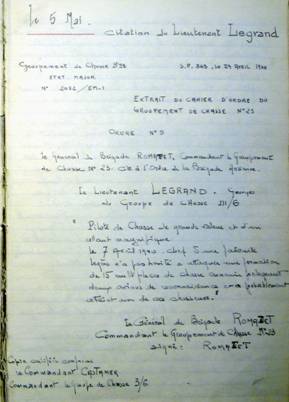 le 5 Mai.
Citation du Lieutenant Legrand
Groupement de Chasse N°23
ETAT. MAJOR
S.P. le 29 AVRIL
N° /EM-1
EXTRAIT DU CAHIER D'ORDRE DU
GROUPEMENT DE CHASSE N°23
ORDRE N° 9
Le Général de Brigade ROMATET, Commandant le Groupement
de Chasse N° 23. Cite à l'Ordre de la Brigade Aérienne.
Le Lieutenant LEGRAND. Georges
du Groupe de Chasse III/6
" Pilote de Chasse de grande valeur et d'un
allant magnifique
le 7 Avril 1940. chef d'une patrouille
légère n'a pas hésité à attaquer une formation
de 15 monoplaces de chasse
deux avions de reconnaissance
un de ces chasseurs."
Le Général de Brigade ROMATET
Commandant le Groupement de Chasse N°23
signé: ROMATET
Copie certifiée conforme
le Commandant CASTANIER
Commandant le Groupe de Chasse 3/6